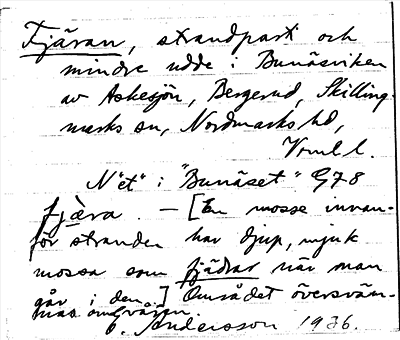 Fjäran, strandparti och
mindre udde i Bunäsviken
av Askesjön, Bergerud, Skilling-
marks sn, Nordmarks hd,
Vrml l.
N"et" i "Bunäset" G78
fjæra. — [En mosse invan-
för stranden har djup, mjuk
mossa som fjädrar när man
går i den.] Området översväm-
mas om våren.
C. Andersson 1936.